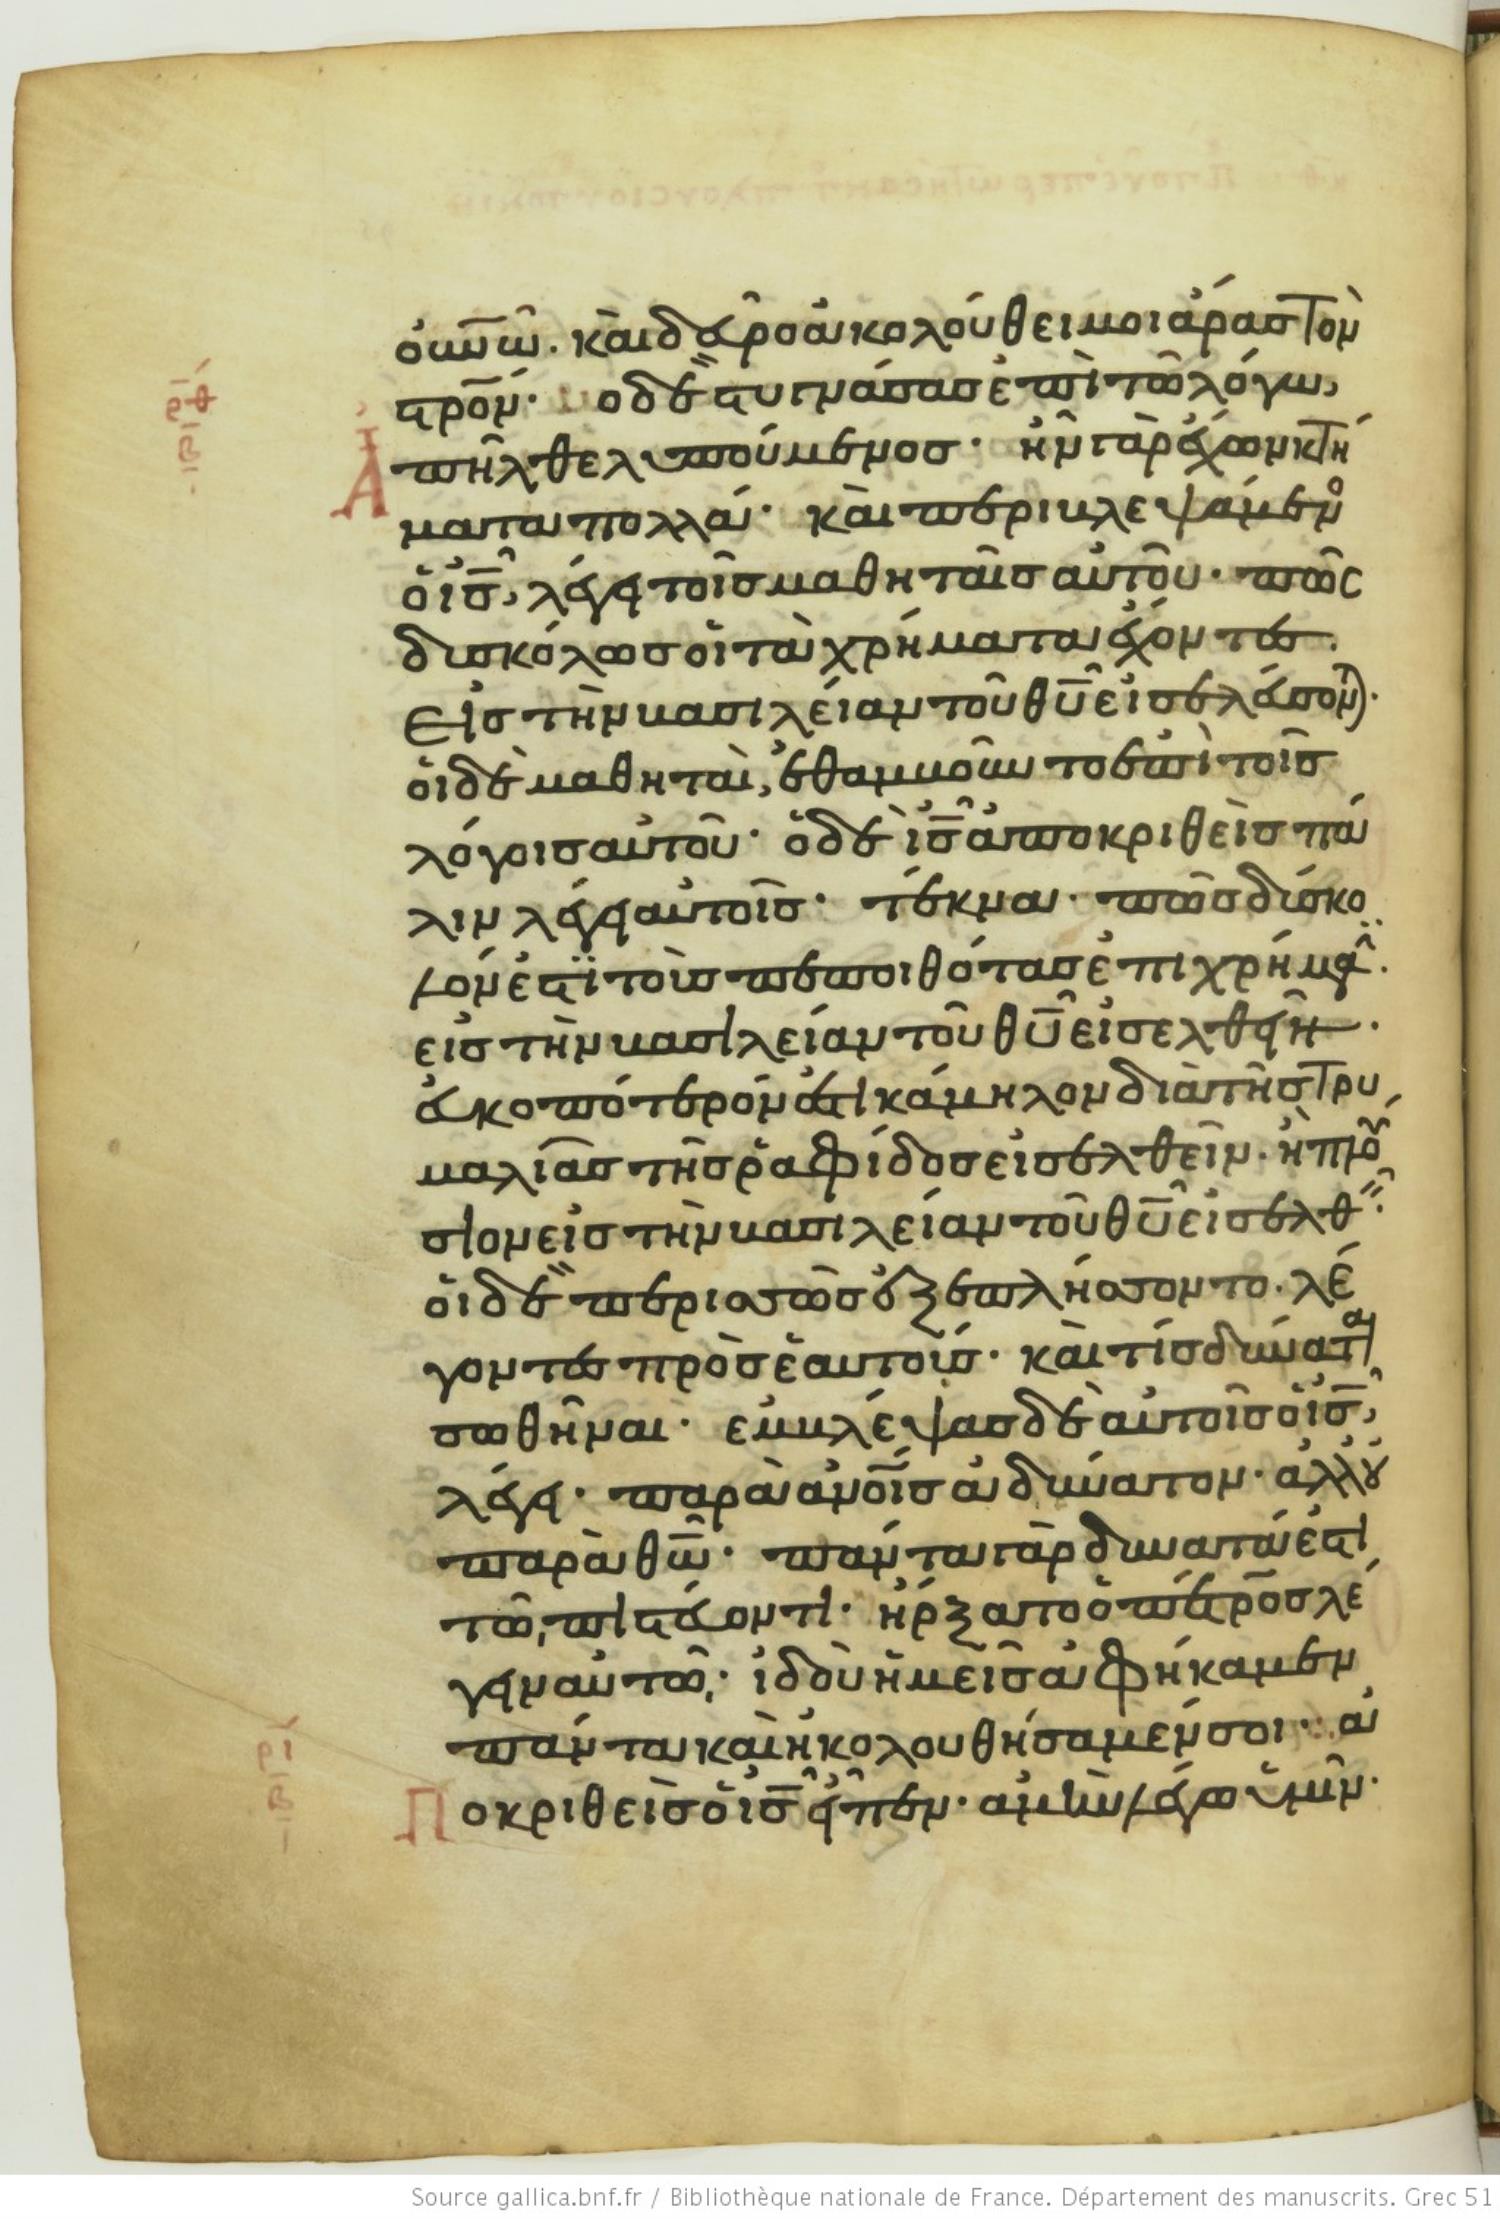 οὐνῶ. καὶ δεῦρο ἀκολούθει μοι ἄρας τὸν
στρον. ὁ δὲ στυγνάσας ἐπὶ τῶ λόγω,
Ἀπῆλθε λυπούμενος. ἦν γὰρ ἔχων κτή
ματα πολλά. καὶ περιβλεψάμενο
ὁ ισ, λέγει τοῖς μαθηταῖς αὐτοῦ. πῶς
δυσκόλως οἱ τὰ χρήματα ἔχοντες.
εἰς τὴν βασιλείαν τοῦ θυ εἰσελεύσον.
οἱ δὲ μαθηταὶ, ἐθαμβοῦντο ἐπὶ τοῖς
λόγοις αὐτοῦ. ὁ δὲ ισ ἀποκριθεὶς πά
λιν λέγει αὐτοῖς. τέκνα. πῶς δύσκο
λόν ἐστι τοὺς πεποιθότας ἐπὶ χρήμα.
εἰς τὴν βασιλείαν τοῦ θυ εἰσελθεῖν.
εὐκοπότερόν ἐστι κάμηλον διὰ τῆς τρυ
μαλιᾶς τῆς ῥαφίδος εἰσελθεῖν. ἢ πλού
σιον εἰς τὴν βασιλείαν τοῦ θυ εἰσελθ.
οἱ δὲ περισσῶς ἐξεπλήσσοντο. λέ
γοντες πρὸς ἑαυτούς. καὶ τίς δύναται
σωθῆναι. ἐμβλέψας δὲ αὐτοῖς ὁ ισ,
λέγει. παρὰ ἀνοις ἀδύνατον. ἀλλ' οὐ
παρὰ θω. πάντα γὰρ δυνατά ἐστι
τῶ πιστεύοντι. ἤρξατο ὁ πέτρος λέ
γειν αὐτῶ. ἰδοὺ ἡμεῖς ἀφήκαμεν
πάντα καὶ ἠκολουθήσαμέν σοι. ἀ
Ποκριθεὶς ὁ ισ εἶπεν. ἀμὴν λέγω ὑμῖν.